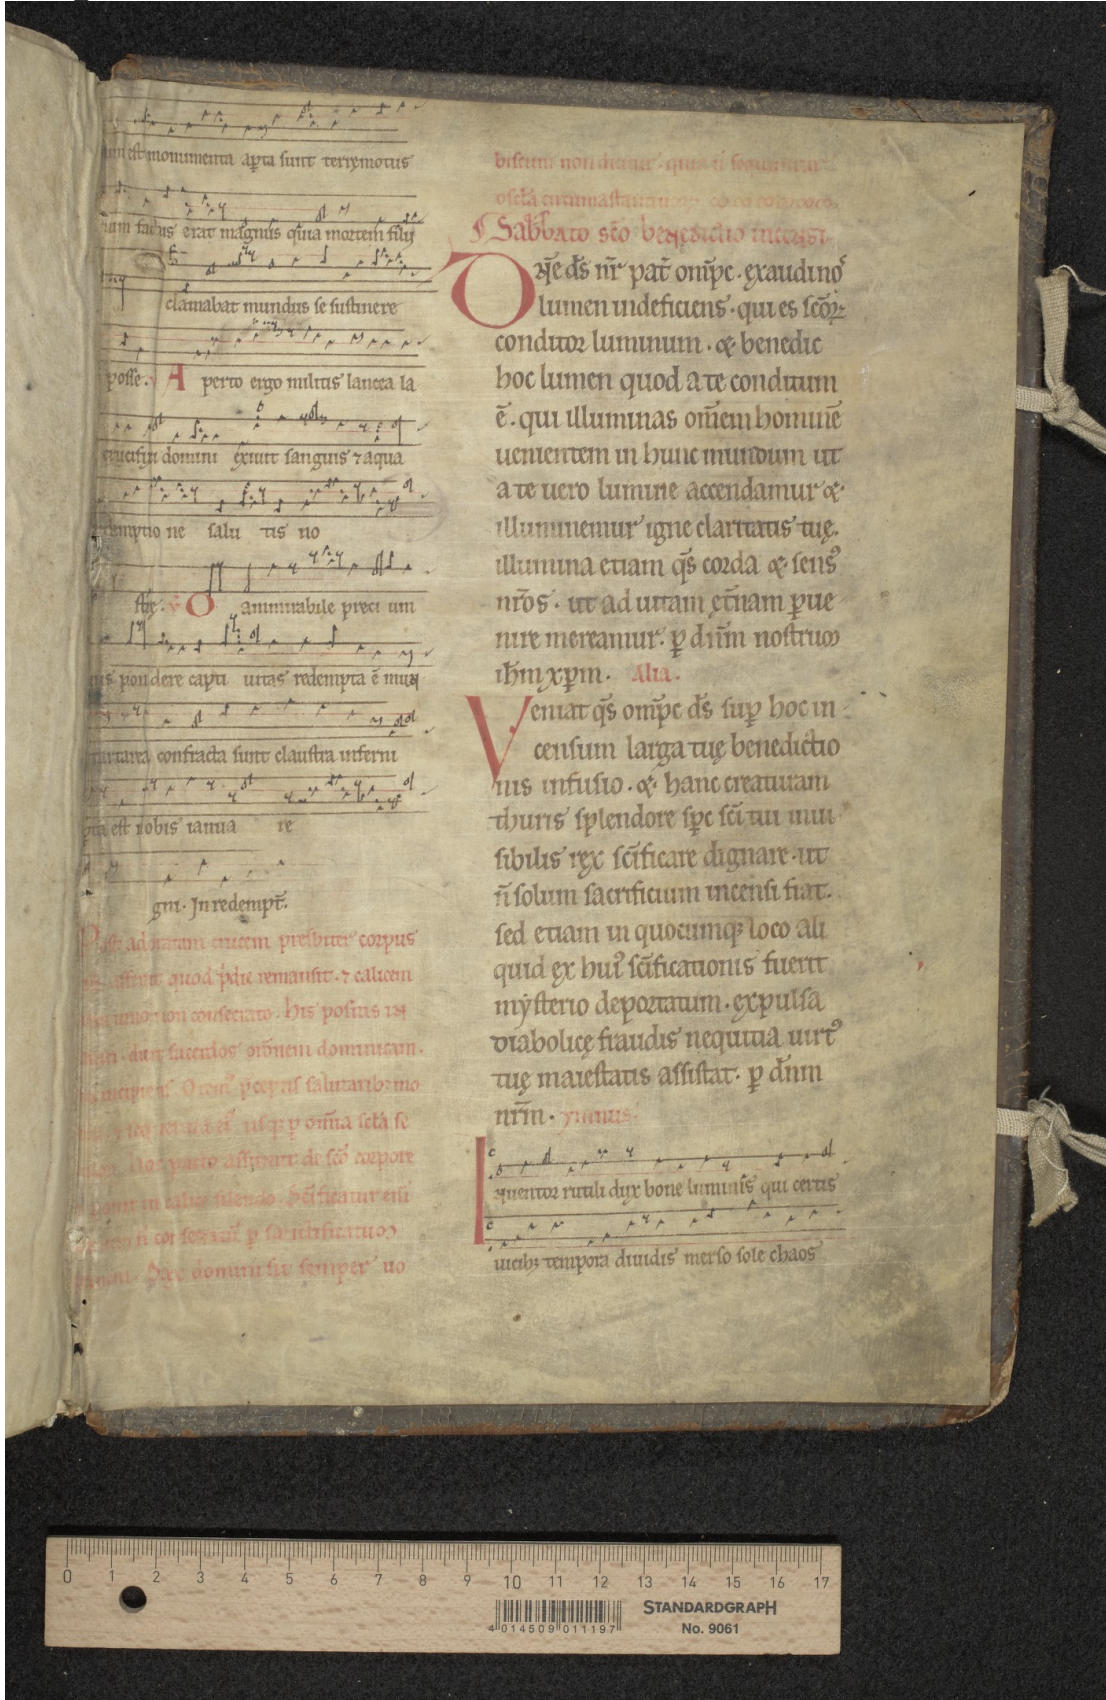 est monumenta aꝑta sunt terręmotus
factus erat magnus quia mortem filij
clamabat mundus se sustinere
posse. A perto ergo militis lancea la
crucifixi domini exiuit sanguis ⁊ aqua
demptio ne salu tis no
strę. v̄ O ammirabile preci um
pondere capti uitas redempta ē
tartarea confracta sunt claustra inferni
est nobis ianua re
gni. In redempt̄.
Post adoratam crucem presbiter corpus
quod p̄die remansit. ⁊ calicem
uino non consecrato. his positis
dicit sacerdos orōnem dominicam.
Orem᷒ p̄ceptis salutarib;
usq; ꝑ om̄ia scl̄a se
corpore
ponit in calice silendo.
ꝑ sanctificatum
Pax domini sit semper uo
biscum non dicitur quia n̄ sequuntur
oscl̄a
Sabbato sc̄o benedictio incensi
Dn̄e ds̄ nr̄ pat̄ om̄pc. exaudi no᷒
lumen indeficiens. qui es sc̄oꝝ
conditor luminum. & benedic
hoc lumen quod a te conditum
ē. qui illuminas om̄em hominē
uenientem in hunc mundum ut
a te uero lumine accendamur &
illuminemur igne claritatis tuę.
illumina etiam qs̄ corda & sens᷒
nr̄os. ut ad uitam ęt̄nam ꝑue
nire mereamur. ꝑ dn̄m nostrum
ih̄m xp̄m. Alia.
Veniat qs̄ om̄pc ds̄ suꝑ hoc in
censum larga tuę benedictio
nis infusio. & hanc creaturam
thuris splendore spc̄ sc̄i tui inui
sibilis rex sc̄ificare dignare. ut
n̄ solum sacrificium incensi fiat.
sed etiam in quocumq; loco ali
quid ex hui᷒ sc̄ificationis fuerit
mysterio deportatum. expulsa
diabolicę fraudis nequitia uirt᷒
tuę maiestatis assistat. ꝑ dn̄m
nr̄m. ymnus.
Inuentor rutili dux bone luminis qui certis
uicib; tempora diuidis merso sole chaos
0 1 2 3 4 5 6 7 8 9 10 11 12 13 14 15 16 17
4 014509 011197
STANDARDGRAPH
No. 9061